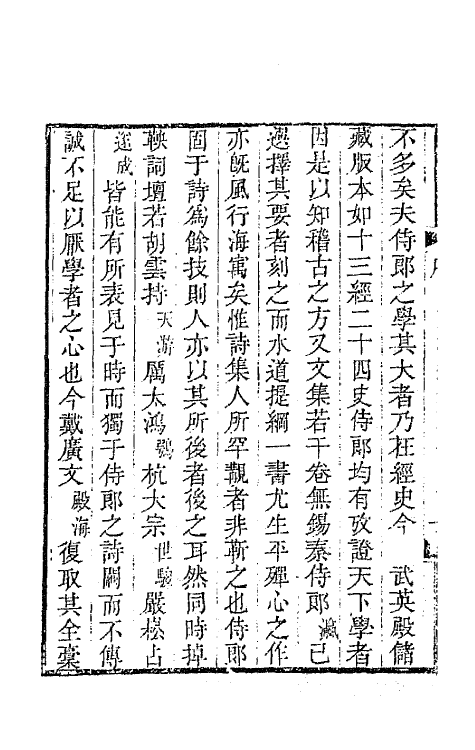 不多矣夫侍郎之學其大者乃在經史今　武英殿儲
藏版本如十三經二十四史侍郎均有攷證天下學者
因是以知稽古之方又文集若干卷無錫秦侍郎瀛已
選擇其要者刻之而水道提綱一書尤生平殫心之作
亦旣風行海寓矣惟詩集人所罕覯者非靳之也侍郎
固于詩爲餘技則人亦以其所後者後之耳然同時掉
鞅詞壇若胡雲持天游厲太鴻鶚杭大宗世駿嚴崧占
遂成皆能有所表見于時而獨于侍郎之詩闕而不傳
誠不足以厭學者之心也今戴廣文殿海復取其全稾
序